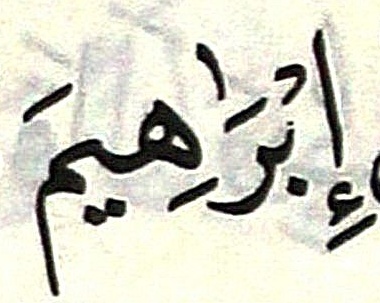 إِبْرَٰهِيمَ